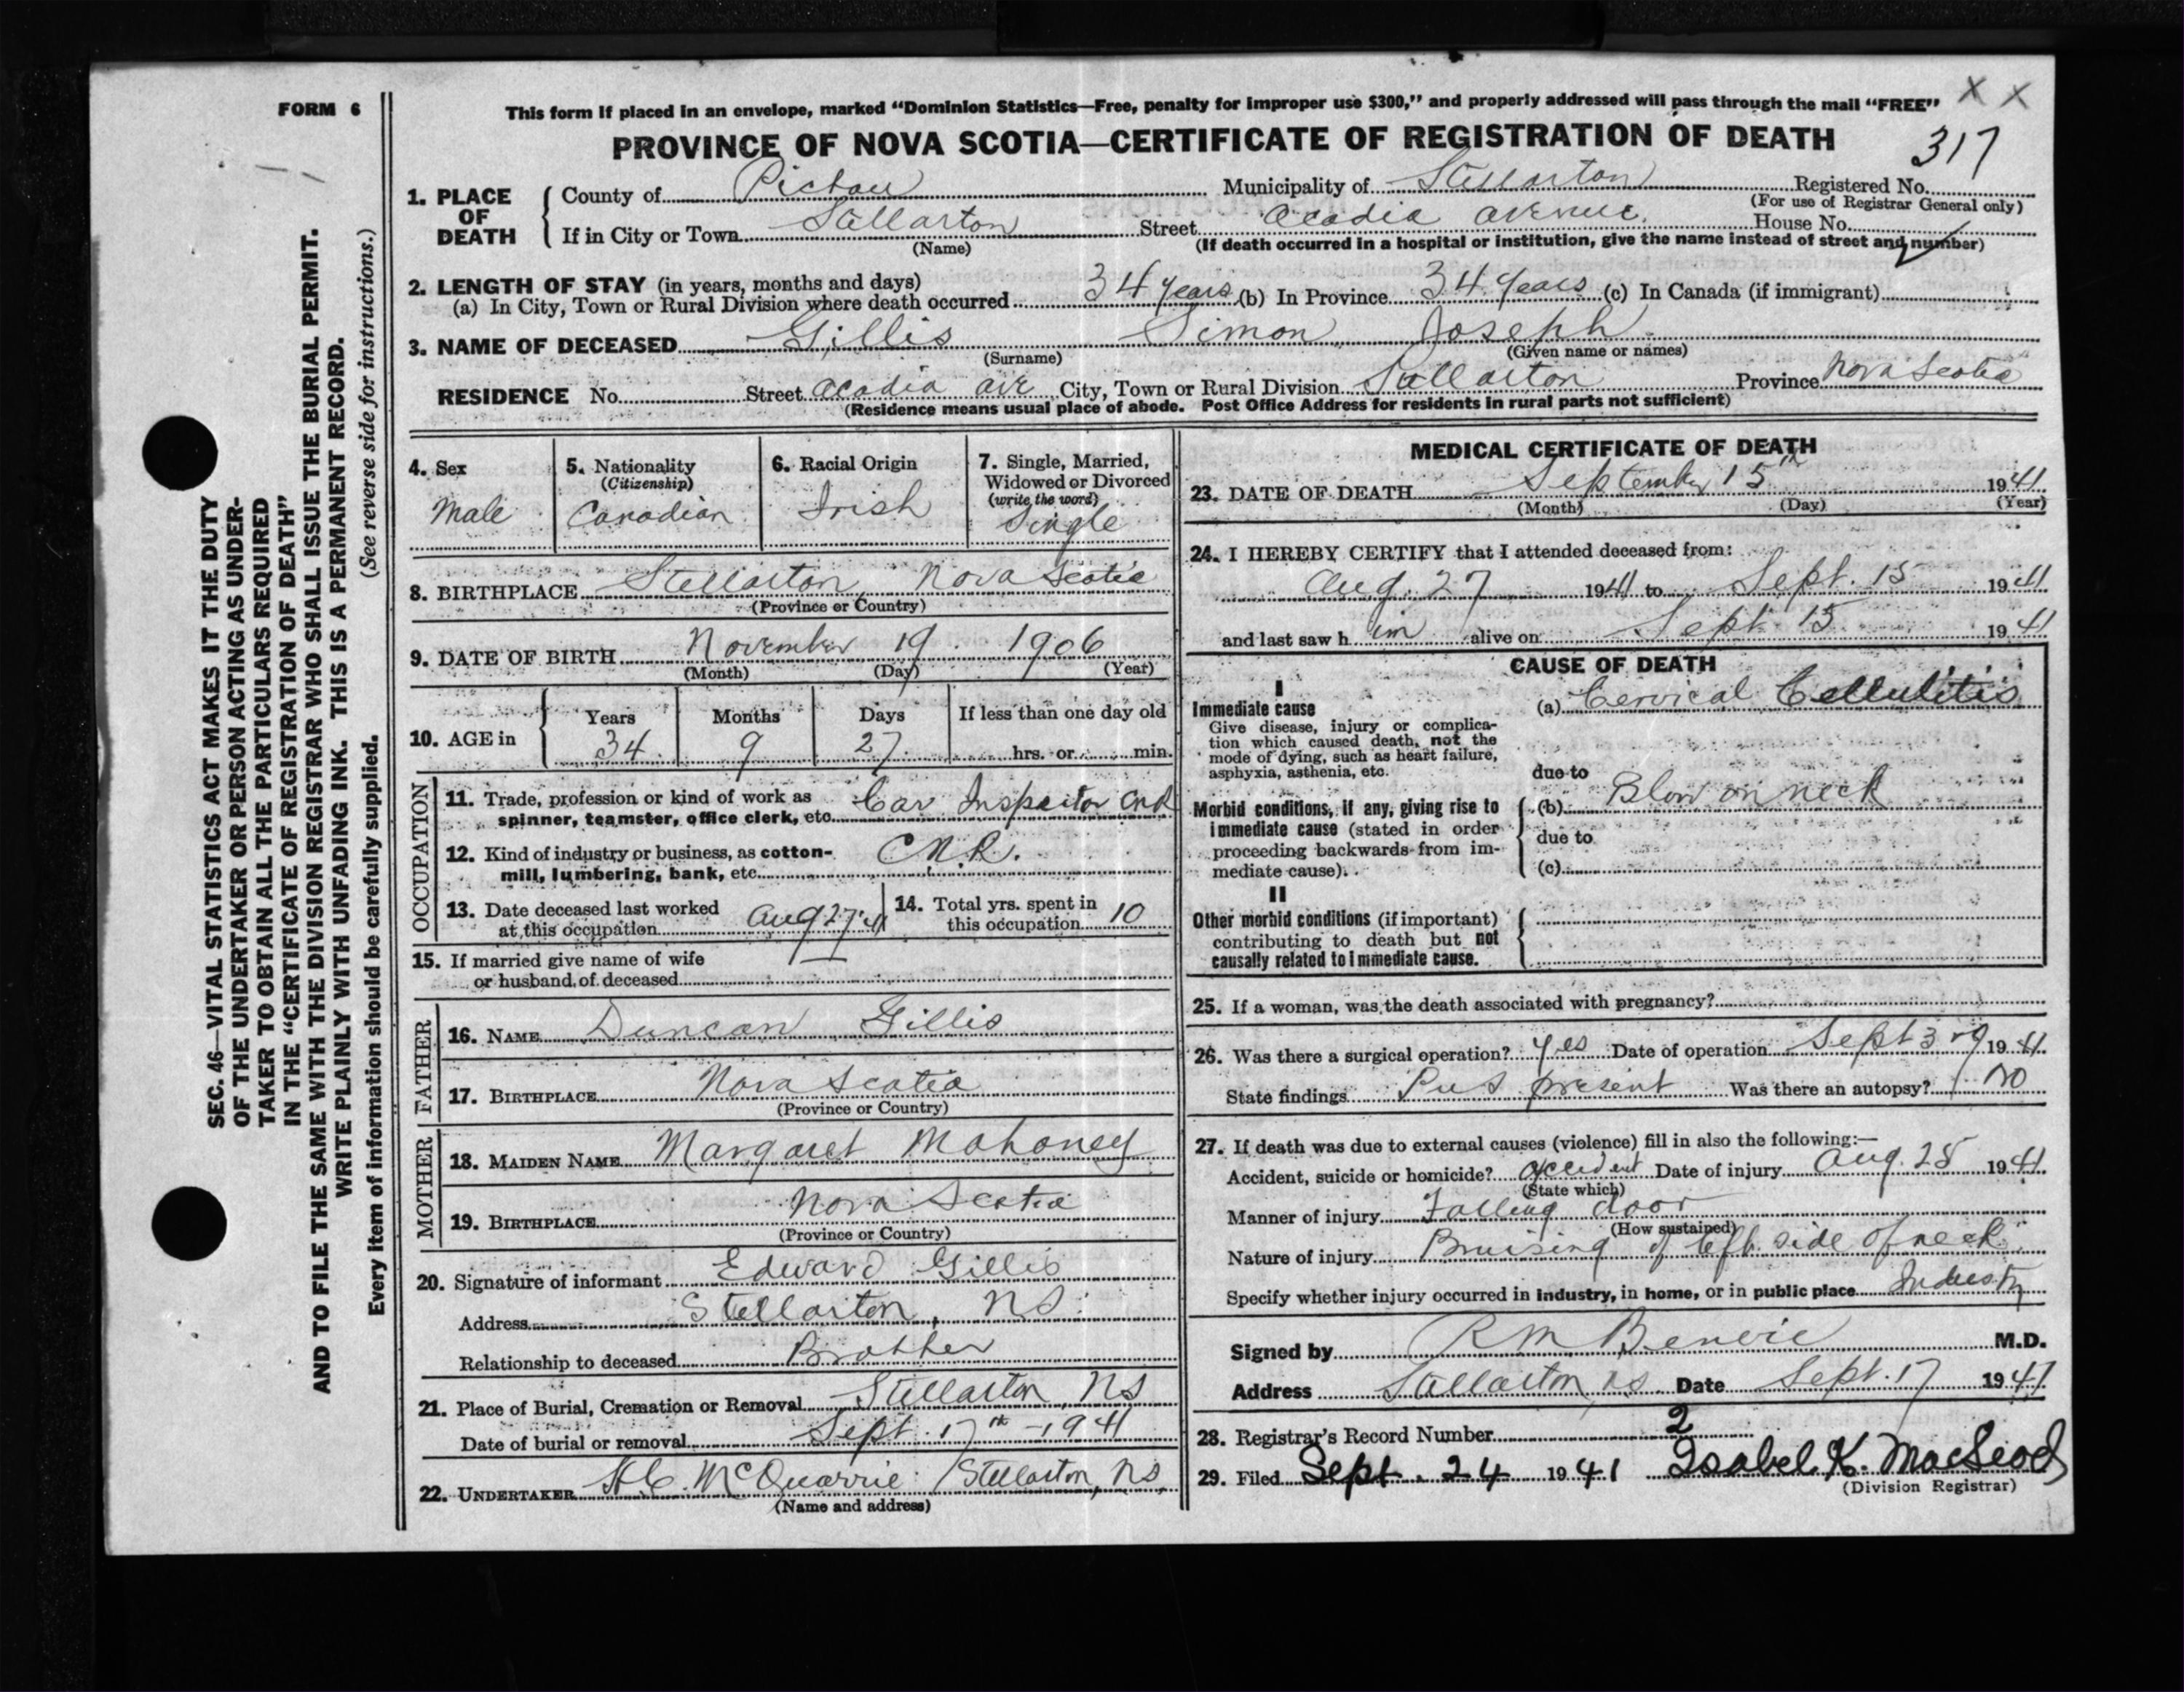 FORM 6
This form if placed in an envelope, marked "Dominion Statistics—Free, penalty for improper use $300," and properly addressed will pass through the mail "FREE" X X
PROVINCE OF NOVA SCOTIA—CERTIFICATE OF REGISTRATION OF DEATH
317
1. PLACE OF DEATH County of Pictou Municipality of Stellarton Registered No.
(For use of Registrar General only)
If in City or Town Stellarton Street Acadia Avenue. House No.
(Name) (If death occurred in a hospital or institution, give the name instead of street and number)
2. LENGTH OF STAY (in years, months and days)
(a) In City, Town or Rural Division where death occurred 34 years (b) In Province 34 years (c) In Canada (if immigrant)
3. NAME OF DECEASED Gillis Simon Joseph
(Surname) (Given name or names)
RESIDENCE No. Street Acadia Ave City, Town or Rural Division Stellarton Province Nova Scotia
(Residence means usual place of abode. Post Office Address for residents in rural parts not sufficient)
4. Sex
Male
5. Nationality
(Citizenship)
Canadian
6. Racial Origin
Irish
7. Single, Married,
Widowed or Divorced
(write the word)
Single
8. BIRTHPLACE Stellarton, Nova Scotia
(Province or Country)
9. DATE OF BIRTH November 19. 1906
(Month) (Day) (Year)
10. AGE in Years Months Days If less than one day old
34. 9 27. hrs. or min.
OCCUPATION
11. Trade, profession or kind of work as
spinner, teamster, office clerk, etc. Car Inspector CNR
12. Kind of industry or business, as cotton-
mill, lumbering, bank, etc. C.N.R.
13. Date deceased last worked
at this occupation Aug 27. 41
14. Total yrs. spent in
this occupation 10
15. If married give name of wife
or husband of deceased —
FATHER
16. NAME Duncan Gillis
17. BIRTHPLACE Nova Scotia
(Province or Country)
MOTHER
18. MAIDEN NAME Margaret Mahoney
19. BIRTHPLACE Nova Scotia
(Province or Country)
20. Signature of informant Edward Gillis
Address Stellarton, NS.
Relationship to deceased Brother
21. Place of Burial, Cremation or Removal Stellarton, NS
Date of burial or removal Sept. 17th - 1941
22. UNDERTAKER McQuarrie Stellarton, NS
(Name and address)
MEDICAL CERTIFICATE OF DEATH
23. DATE OF DEATH September 15th 1941
(Month) (Day) (Year)
24. I HEREBY CERTIFY that I attended deceased from:
Aug. 27 1941 to Sept. 15 1941
and last saw him alive on Sept. 15 1941
CAUSE OF DEATH
I
Immediate cause
Give disease, injury or complica-
tion which caused death, not the
mode of dying, such as heart failure,
asphyxia, asthenia, etc.
(a) Cervical Cellulitis
due to
Morbid conditions, if any, giving rise to
immediate cause (stated in order
proceeding backwards from im-
mediate cause).
(b) Blow on neck
due to
(c)
II
Other morbid conditions (if important)
contributing to death but not
causally related to immediate cause.
25. If a woman, was the death associated with pregnancy?
26. Was there a surgical operation? Yes Date of operation Sept 3 1941.
State findings Pus present Was there an autopsy? no
27. If death was due to external causes (violence) fill in also the following:—
Accident, suicide or homicide? accident Date of injury Aug. 25 1941.
(State which)
Manner of injury Falling door
(How sustained)
Nature of injury Bruising of left side of neck
Specify whether injury occurred in industry, in home, or in public place Industry
Signed by R M Benvie M.D.
Address Stellarton, NS Date Sept. 17 1941
28. Registrar's Record Number 2
29. Filed Sept. 24 1941 Isabel K. MacLeod
(Division Registrar)
SEC. 46—VITAL STATISTICS ACT MAKES IT THE DUTY
OF THE UNDERTAKER OR PERSON ACTING AS UNDER-
TAKER TO OBTAIN ALL THE PARTICULARS REQUIRED
IN THE "CERTIFICATE OF REGISTRATION OF DEATH"
AND TO FILE THE SAME WITH THE DIVISION REGISTRAR WHO SHALL ISSUE THE BURIAL PERMIT.
WRITE PLAINLY WITH UNFADING INK. THIS IS A PERMANENT RECORD.
Every item of information should be carefully supplied. (See reverse side for instructions.)